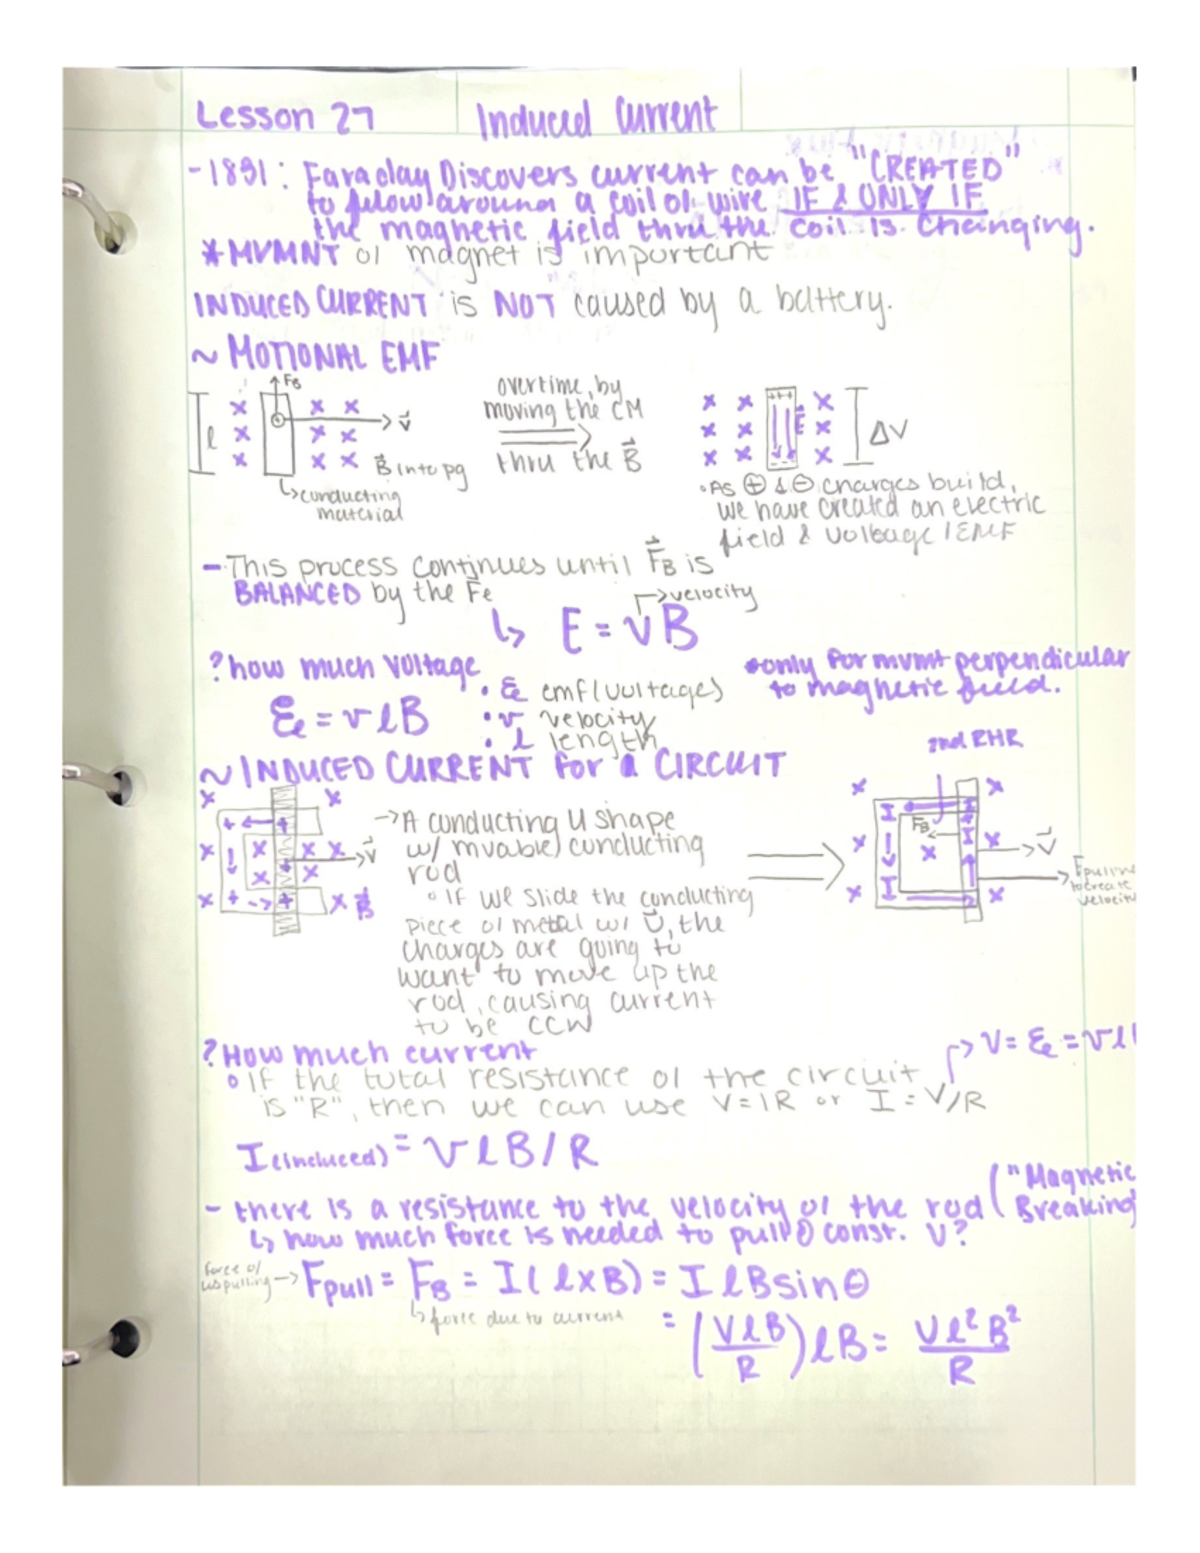 Lesson 27 Induced Current
-1831: Faraday Discovers current can be "CREATED"
to flow around a coil of wire IF & ONLY IF
the magnetic field thru the coil is changing.
*MVMNT of magnet is important
INDUCED CURRENT is NOT caused by a battery.
~ MOTIONAL EMF
FB
l
x x x
x x x
x x x
v⃗
B⃗ into pg
↳conducting
material
overtime, by
moving the CM
thru the B⃗
x x x
x x x
x x x
+++
E⃗
ΔV
• As ⊕ & ⊖ charges build,
we have created an electric
field & voltage / EMF
- This process continues until F⃗B is
BALANCED by the Fe
↳ E = vB
→velocity
? how much voltage
ℰ = vlB
• ℰ emf (voltages)
• v velocity
• l length
*only for mvmt perpendicular
to magnetic field.
~ INDUCED CURRENT for a CIRCUIT
2nd RHR
→ A conducting U shape
w/ mvable conducting
rod
• If we slide the conducting
piece of metal w/ v⃗, the
charges are going to
want to move up the
rod, causing current
to be CCW
v⃗
B⃗
I
I
I
I
FB
v⃗
Fpulling
to create
velocity
? How much current
→ V = ℰ = vl
• If the total resistance of the circuit
is "R", then we can use V=IR or I = V/R
I(induced) = vlB/R
- there is a resistance to the velocity of the rod ("Magnetic
Breaking
↳ how much force is needed to pull @ const. V?
force of
us pulling → Fpull = FB = I(l×B) = IlBsinθ
↳ force due to current
= (VlB/R)lB = Vl²B²/R